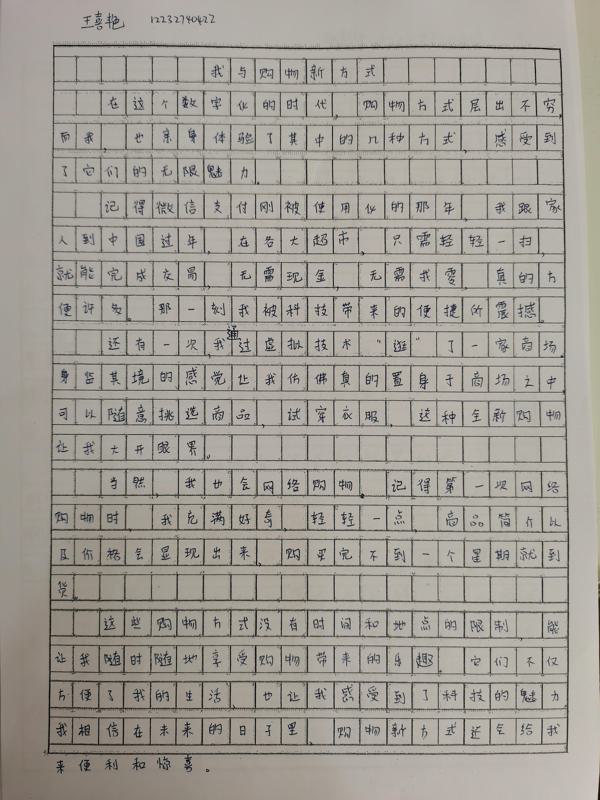 王喜艳 12232740422
我与购物新方式
在这个数字化的时代，购物方式层出不穷，
而我，也亲身体验了其中的几种方式，感受到
了它们的无限魅力。
记得微信支付刚被使用似的那年，我跟家
人到中国过年，在各大超市，只需轻轻一扫，
就能完成交易，无需现金，无需找零，真的方
便许多。那一刻我被科技带来的便捷所震撼。
还有一次，我通过虚拟技术“逛”了一家商场。
身监其境的感觉让我仿佛真的置身于商场之中
可以随意挑选商品，试穿衣服，这种全新购物
让我大开眼界。
当然，我也会网络购物。记得第一次网络
购物时，我充满好奇，轻轻一点，商品简介以
及价格会显现出来，购买完不到一个星期就到
货。
这些购物方式没有时间和地点的限制，能
让我随时随地享受购物带来的乐趣。它们不仅
方便了我的生活，也让我感受到了科技的魅力
我相信在未来的日子里，购物新方式还会给我
来便利和惊喜。